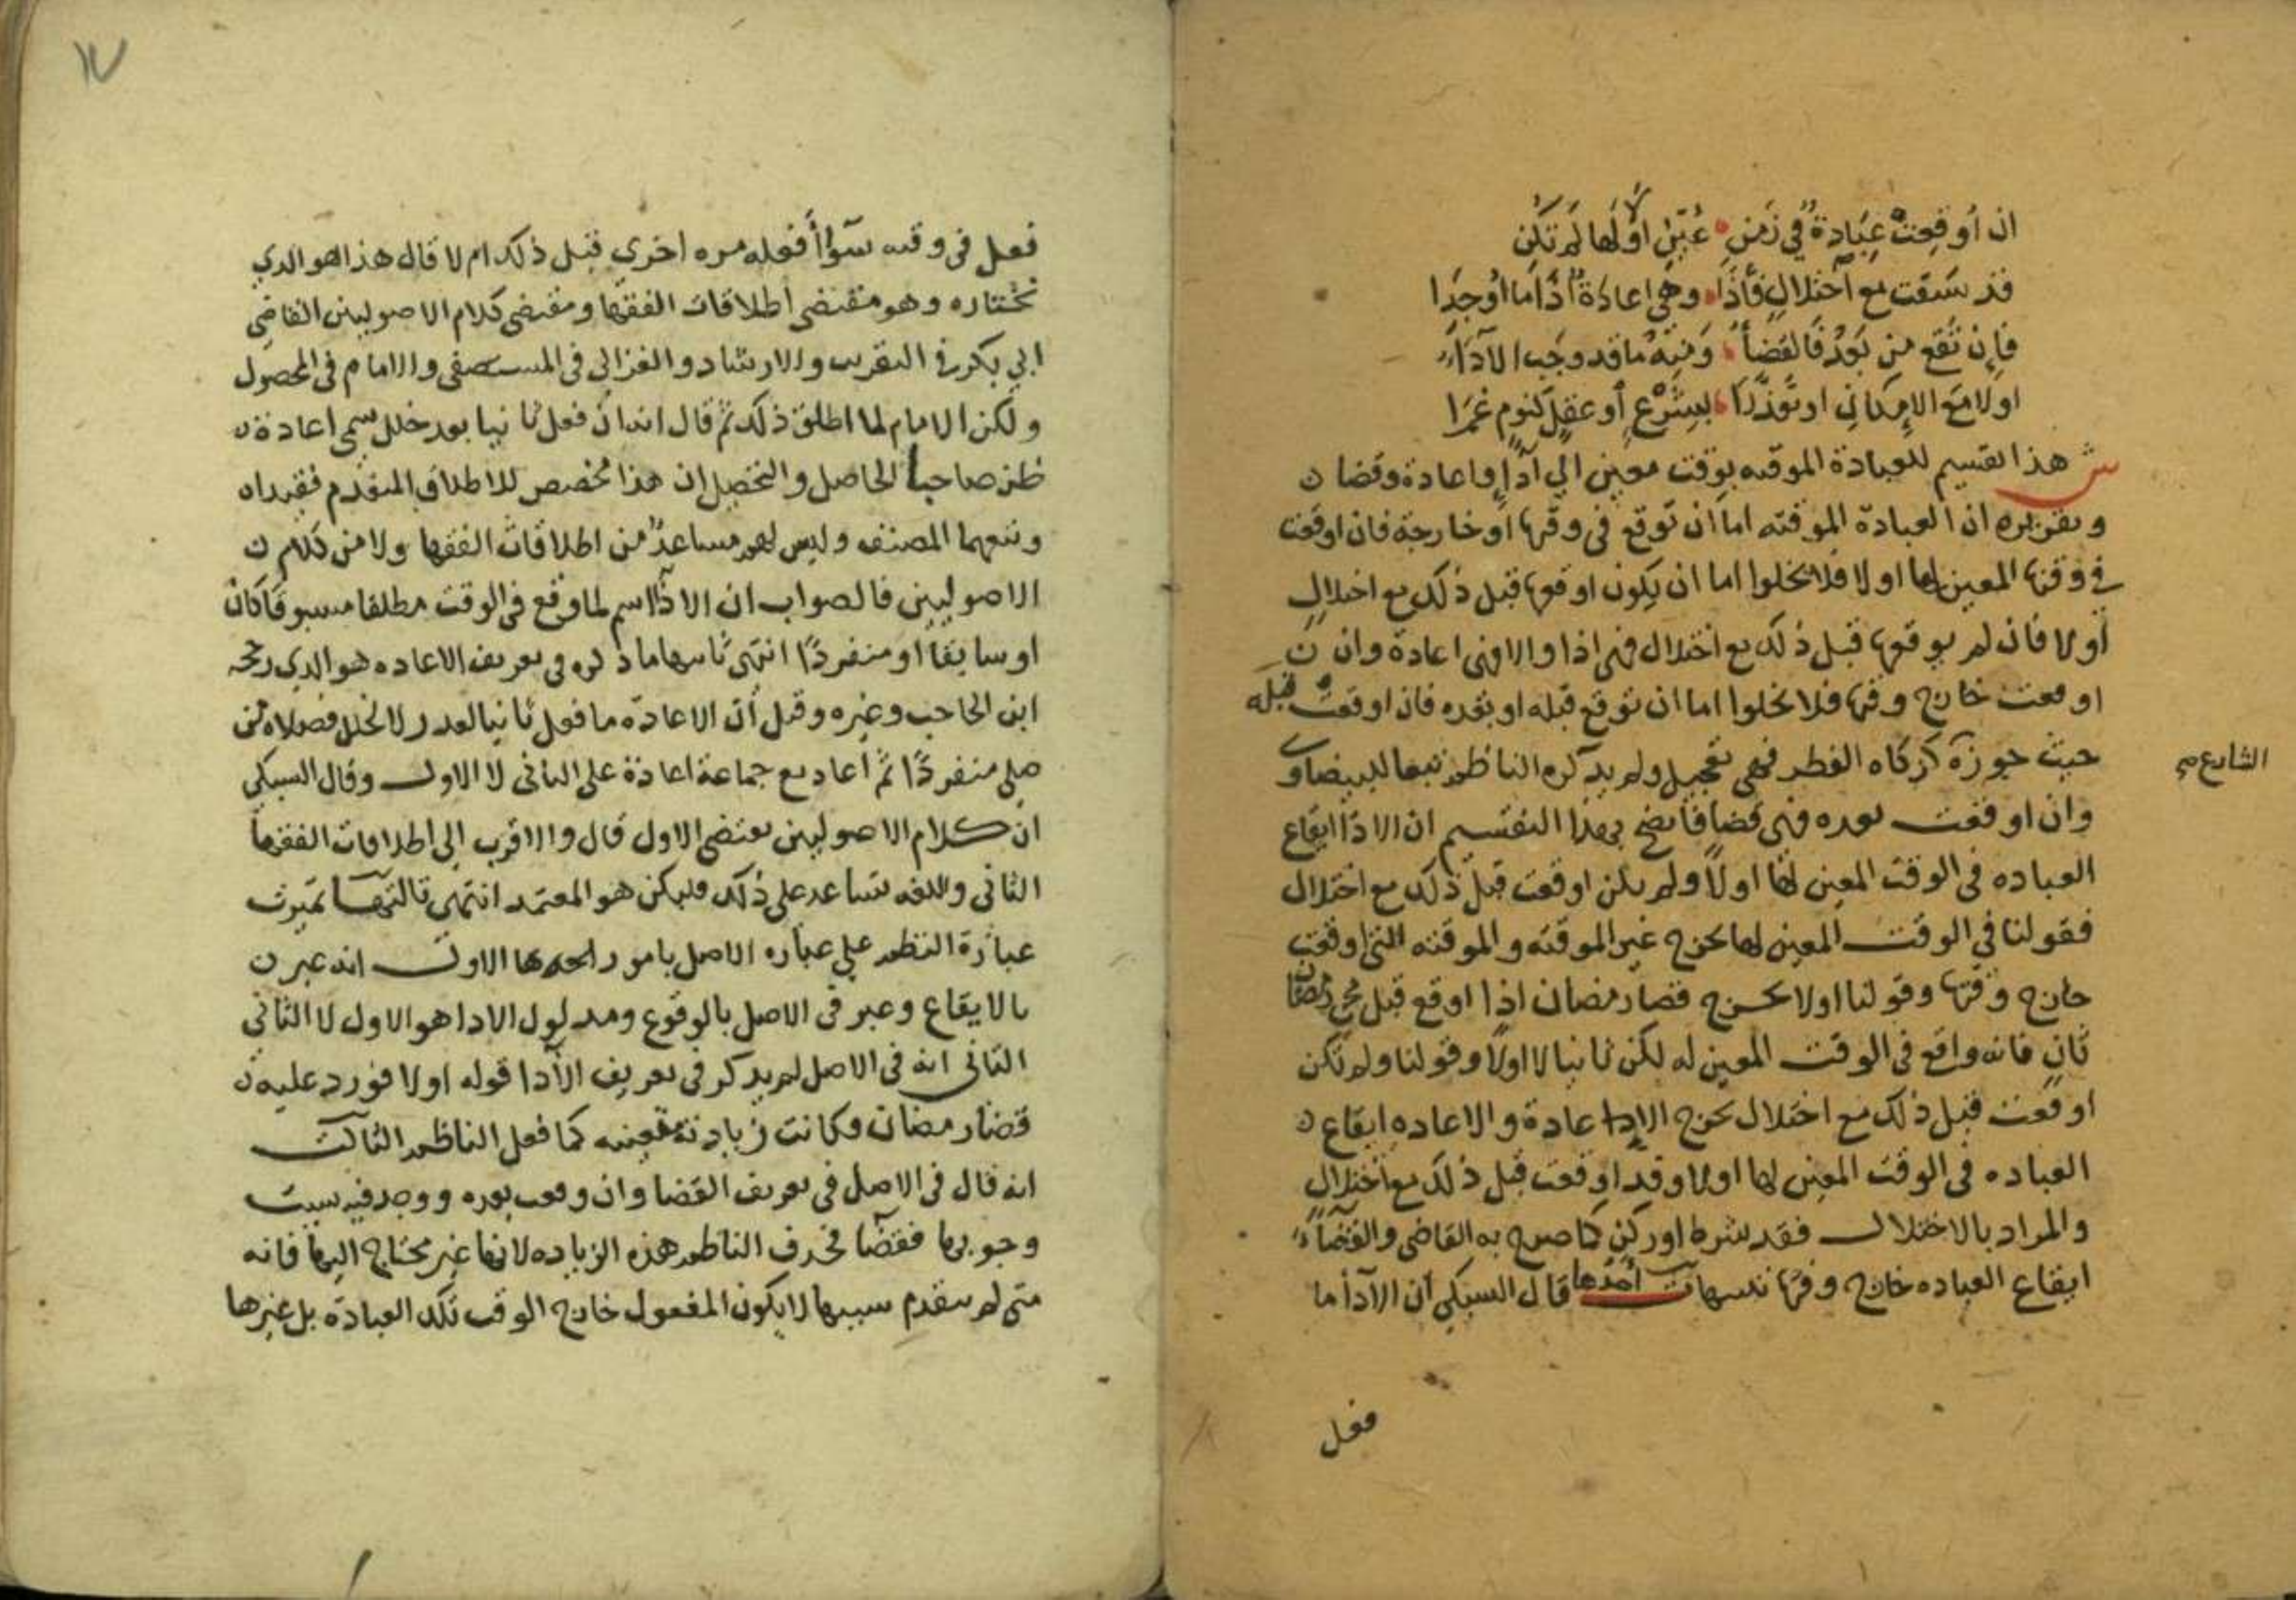 ان أوقعت عبادة في زمن عين أولا لها لم تكن
قد سبقت مع اختلال فأدا وهي اعادة اذا ما اوجدا
فإن تقع من بعد فالقضاء ومنه ما قد وجب الآداء
اولا مع الإمكان او تعذرا بشرع أو عقل كنوم غمرا
ش هذا تقسيم للعبادة الموقته بوقت معين الي أداء واعادة وقضا
وتقريره ان العبادة الموقته اما ان توقع في وقتها او خارجة فان اوقعت
في وقتها المعين لها اولا فلا تخلوا اما ان يكون اوقعها قبل ذلك مع اختلال
أو لا فان لم يوقعها قبل ذلك مع اختلال فهي اداء والا فهي اعادة وان
اوقعت خارج وقتها فلا تخلوا اما ان توقع قبله او بعده فان اوقعت قبله
حيث جوزه كزكاه الفطر فهي تعجيل ولم يذكره الناظم تبعا للبيضاوي
الشارع صح
وان اوقعت بعده فهي قضا فاتضح بهذا التقسيم ان الاداء ايقاع
العباده في الوقت المعين لها اولا ولم يكن اوقعت قبل ذلك مع اختلال
فقولنا في الوقت المعين لها يخرج غير الموقته والموقته التي اوقعت
خارج وقتها وقولنا اولا يخرج قضا رمضان اذا اوقع قبل مجي رمضان
ثان فانه واقع في الوقت المعين له لكن ثانيا لا اولا وقولنا ولم تكن
اوقعت قبل ذلك مع اختلال يخرج الاعادة والاعاده ايقاع
العباده في الوقت المعين لها اولا وقد اوقعت قبل ذلك مع اختلال
والمراد بالاختلال فقد شرط او ركن كما صرح به القاضي والقضاء
ايقاع العباده خارج وقتها تنبيهات أحدها قال السبكي ان الآدا ما
فعل
١٧
فعل في وقته سوا أفعله مره اخري قبل ذلك ام لا قال هذا هو الذي
نختاره وهو مقتضي اطلاقات الفقها ومقتضى كلام الاصوليين القاضي
ابي بكر في التقريب والارشاد والغزالي في المستصفى والامام في المحصول
ولكن الامام لما اطلق ذلك ثم قال انه ان فعل ثانيا بعد خلل سمي اعادة
ظن صاحبا الحاصل والتحصيل ان هذا مخصص للاطلاق المتقدم فقيداه
وتبعهما المصنف وليس لهم مساعد من اطلاقات الفقها ولا من كلام
الاصوليين فالصواب ان الاداء اسم لما وقع في الوقت مطلقا مسبوقا كان
او سابقا او منفردا انتهى ثانيها ما ذكره في تعريف الاعاده هو الذي رجحه
ابن الحاجب وغيره وقيل أن الاعادة ما فعل ثانيا لعذر لا لخلل فصلاة من
صلى منفردا ثم أعاد مع جماعة اعادة على الثاني لا الاول وقال السبكي
ان كلام الاصوليين يقتضي الاول قال والاقرب إلى اطلاقات الفقها
الثاني واللغه تساعد على ذلك فليكن هو المعتمد انتهى ثالثها تميزت
عبارة النظم علي عباره الاصل بامور احدها الاول انه عبر
بالايقاع وعبر في الاصل بالوقوع ومدلول الادا هو الاول لا الثاني
الثاني انه في الاصل لم يذكر في تعريف الأدا قوله اولا فورد عليه
قضا رمضان وكانت زيادته متعينه كما فعل الناظم الثالث
انه قال في الاصل في تعريف القضا وان وقعت بعده ووجد فيه سبب
وجوبها فقضاء فحذف الناظم هذه الزياده لانها غير محتاج اليها فانه
متى لم يتقدم سببها لا يكون المفعول خارج الوقت تلك العبادة بل غيرها